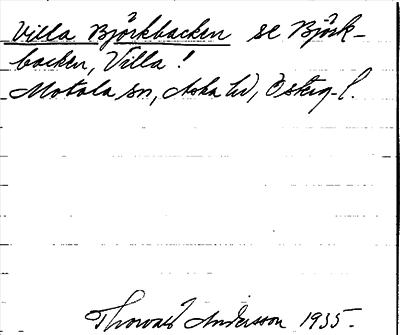 Villa Björkbacken se Björk-
backen, Villa!
Motala sn, Aska hd, Österg-l.
Thorvald Andersson 1935.